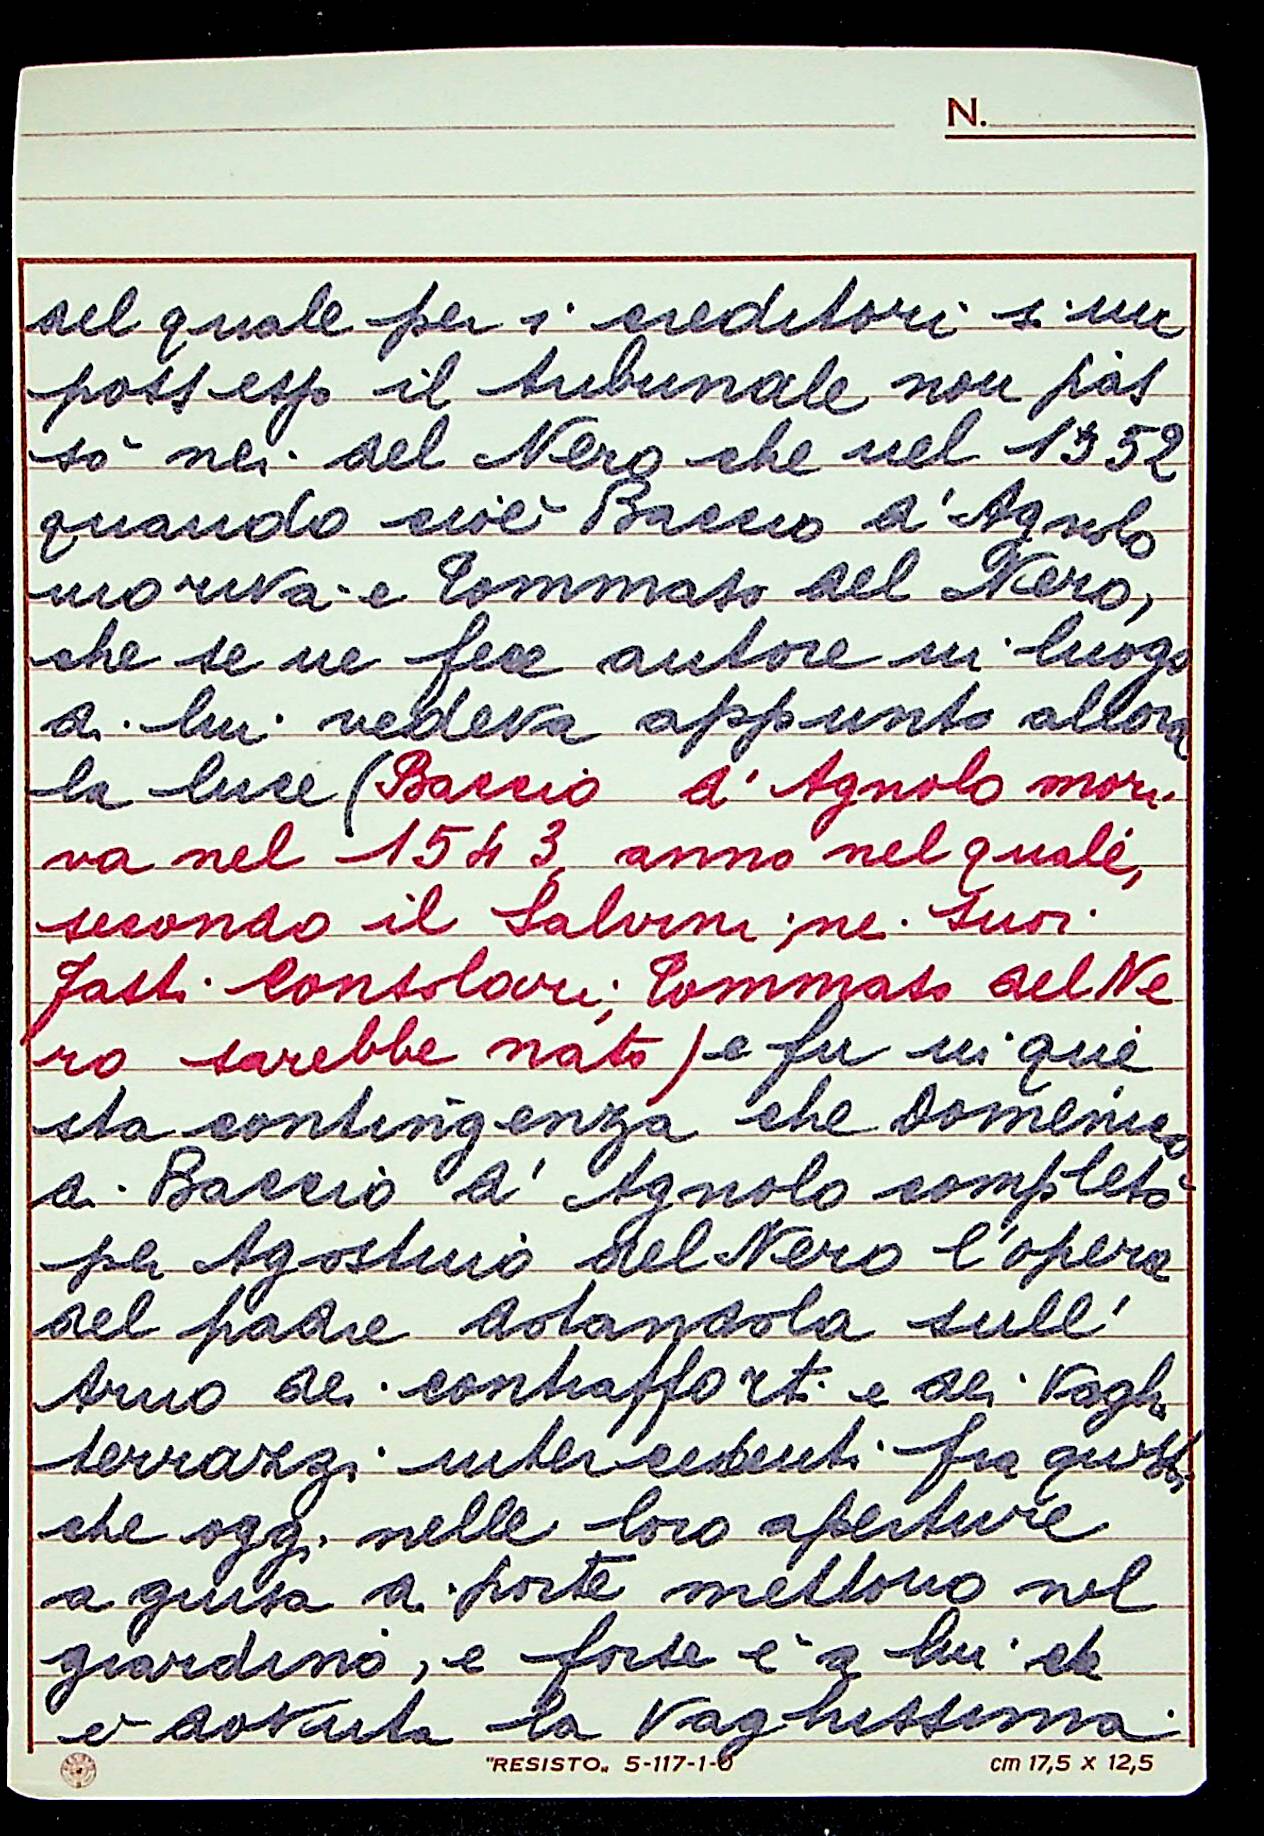 N.
del quale per i creditori s'im
possessò il tribunale non pas
sò nei del Nero che nel 1552
quando cioè Baccio d'Agnolo
moriva e Tommaso del Nero,
che se ne fece autore in luogo
di lui vedeva appunto allora
la luce (Baccio d'Agnolo mori
va nel 1543, anno nel quale,
secondo il Salvini, nei suoi
Fasti Consolari, Tommaso del Ne
ro sarebbe nato) e fu in que
sta contingenza che Domenico
di Baccio d'Agnolo completò
per Agostino del Nero l'opera
del padre dotandola sull'
Arno dei contrafforti e dei vaghi
terrazzi intercedenti fra questi,
che oggi nelle loro aperture
a guisa di porte mettono nel
giardino, e forse è a lui che
è dovuta la vaghissima
"RESISTO„ 5-117-1-0 cm 17,5 x 12,5